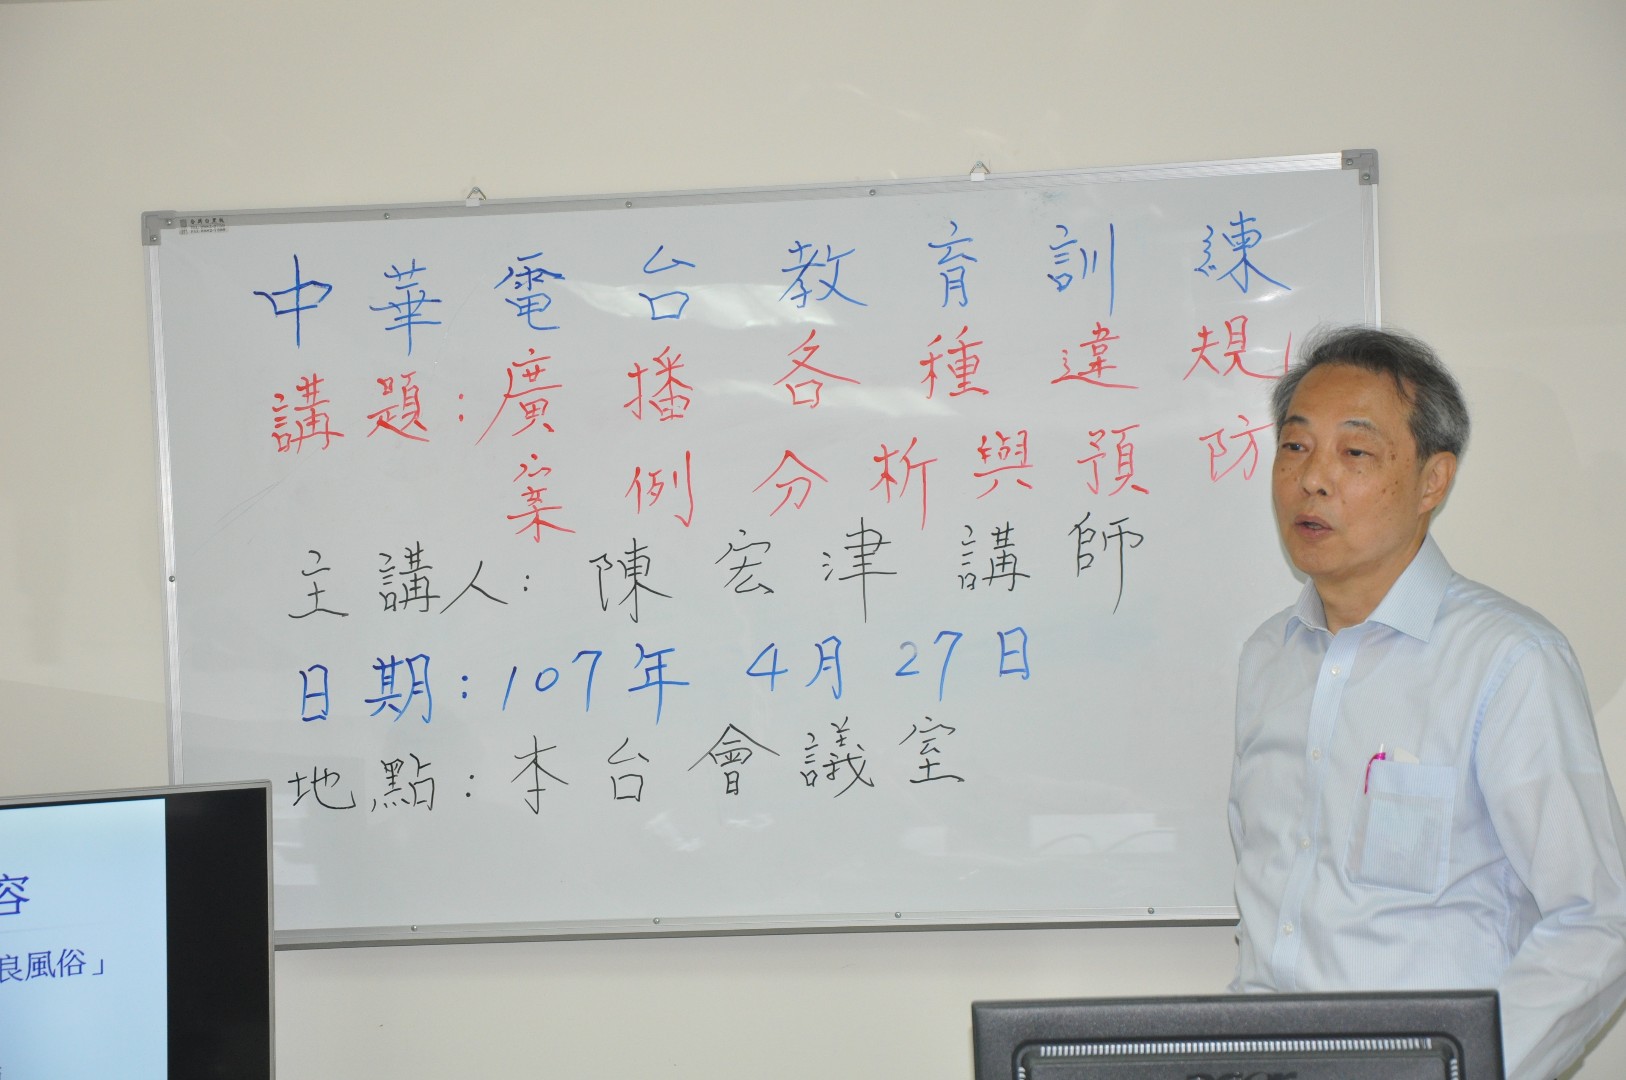 中華電台教育訓練
講題:廣播各種違規
案例分析與預防
主講人:陳宏津講師
日期:107年4月27日
地點:本台會議室
容
良風俗」
acer